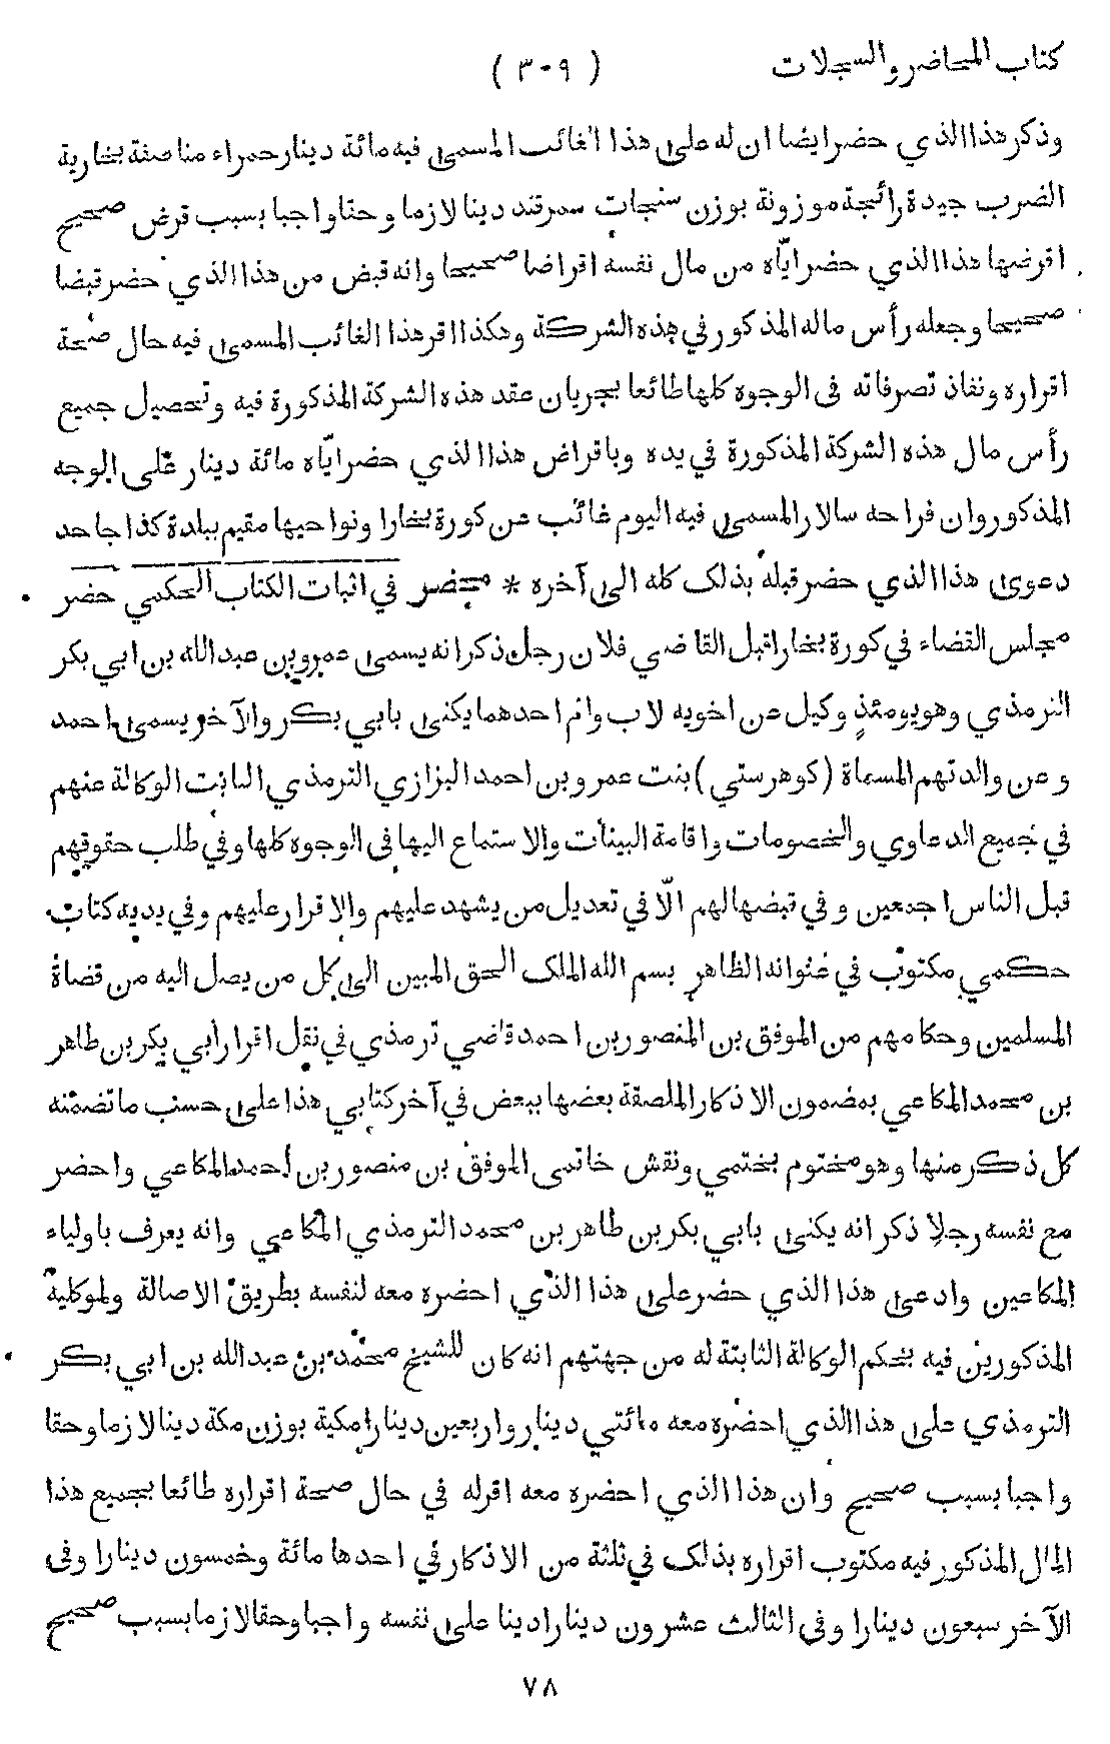 كتاب المحاضر والسجلات
( ٣٠٩ )
وذكر هذا الذي حضر ايضا ان له على هذا الغائب المسمى فيه مائة دينار حمراء مناصفة بخارية
الضرب جيدة رائجة موزونة بوزن سنجات سمرقند دينا لازما وحقا واجبا بسبب قرض صحيح
اقرضها هذا الذي حضر ايّاه من مال نفسه اقراضا صحيحا وانه قبض من هذا الذي حضر قبضا
صحيحا وجعله رأس ماله المذكور في هذه الشركة وهكذا اقر هذا الغائب المسمى فيه حال صحة
اقراره ونفاذ تصرفاته فى الوجوه كلها طائعا بجريان عقد هذه الشركة المذكورة فيه وتحصيل جميع
رأس مال هذه الشركة المذكورة في يده وباقراض هذا الذي حضر ايّاه مائة دينار على الوجه
المذكور وان فراحه سالار المسمى فيه اليوم غائب عن كورة بخارا ونواحيها مقيم ببلدة كذا جاحد
دعوى هذا الذي حضر قبله بذلك كله الى آخره * محضر في اثبات الكتاب الحكمي حضر
مجلس القضاء في كورة بخارا قبل القاضي فلان رجل ذكر انه يسمى عمرو بن عبد الله بن ابي بكر
الترمذي وهو يومئذٍ وكيل عن اخويه لاب وام احدهما يكنى بابي بكر والآخر يسمى احمد
وعن والدتهم المسماة (كوهرستي) بنت عمرو بن احمد البزازي الترمذي الثابت الوكالة عنهم
في جميع الدعاوي والخصومات واقامة البينات والاستماع اليها فى الوجوه كلها وفي طلب حقوقهم
قبل الناس اجمعين وفي قبضها لهم الّا في تعديل من يشهد عليهم والاقرار عليهم وفي يديه كتاب
حكمي مكتوب في عنوانه الظاهر بسم الله الملك الحق المبين الى كل من يصل اليه من قضاة
المسلمين وحكامهم من الموفق بن المنصور بن احمد قاضي ترمذي في نقل اقرار أبي بكر بن طاهر
بن محمد المكاعي بمضمون الاذكار الملصقة بعضها ببعض في آخر كتابي هذا على حسب ما تضمنه
كل ذكر منها وهو مختوم بختمي ونقش خاتمى الموفق بن منصور بن احمد المكاعي واحضر
مع نفسه رجلا ذكر انه يكنى بابي بكر بن طاهر بن محمد الترمذي المكاعي وانه يعرف باولياء
المكاعين وادعى هذا الذي حضر على هذا الذي احضره معه لنفسه بطريق الاصالة ولموكليه
المذكورين فيه بحكم الوكالة الثابتة له من جهتهم انه كان للشيخ محمد بن عبد الله بن ابي بكر
الترمذي على هذا الذي احضره معه مائتي دينار واربعين دينارا مكية بوزن مكة دينا لازما وحقا
واجبا بسبب صحيح وان هذا الذي احضره معه اقر له في حال صحة اقراره طائعا بجميع هذا
المال المذكور فيه مكتوب اقراره بذلك في ثلثة من الاذكار في احدها مائة وخمسون دينارا وفى
الآخر سبعون دينارا وفى الثالث عشرون دينارا دينا على نفسه واجبا وحقا لازما بسبب صحيح
٧٨